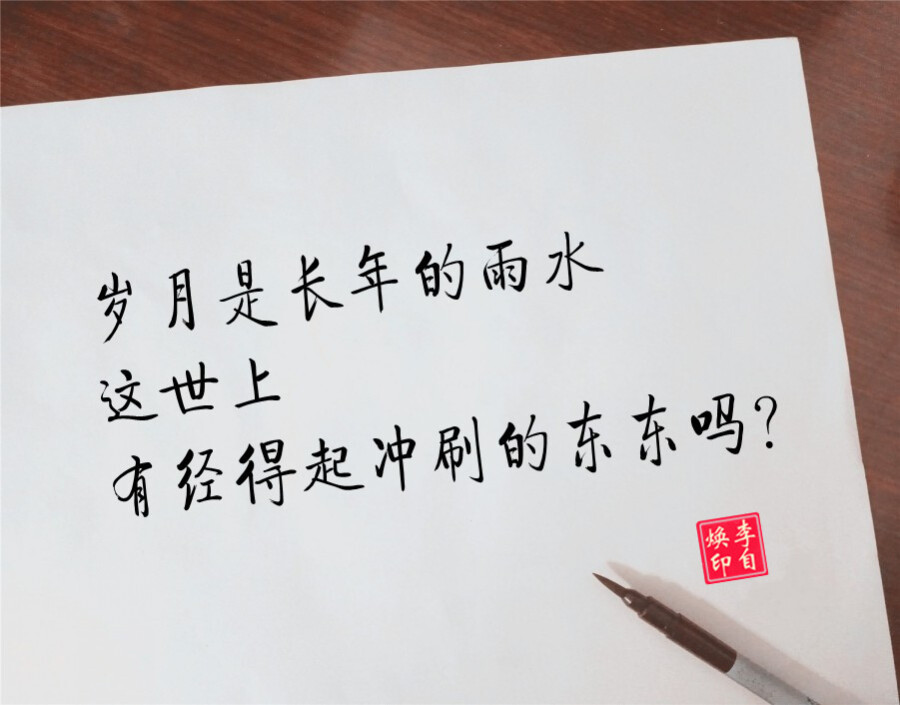 岁月是长年的雨水
这世上
有经得起冲刷的东东吗？
李自
焕印